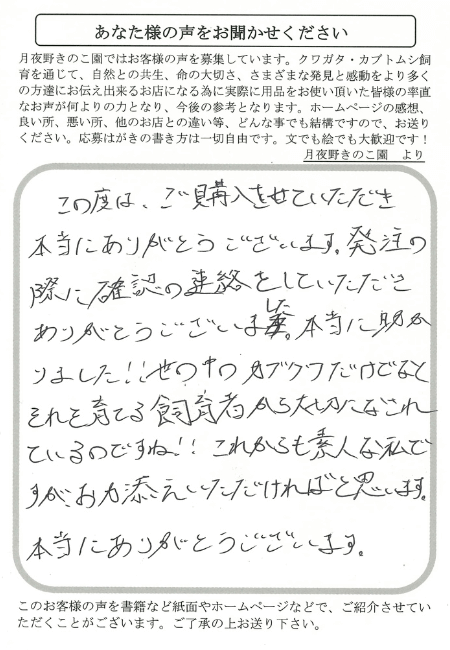 あなた様の声をお聞かせください
月夜野きのこ園ではお客様の声を募集しています。クワガタ・カブトムシ飼
育を通じて、自然との共生、命の大切さ、さまざまな発見と感動をより多く
の方達にお伝え出来るお店になる為に実際に用品をお使い頂いた皆様の率直
なお声が何よりの力となり、今後の参考となります。ホームページの感想、
良い所、悪い所、他のお店との違い等、どんな事でも結構ですので、お送り
ください。応募はがきの書き方は一切自由です。文でも絵でも大歓迎です！
月夜野きのこ園　より
この度は、ご購入をせていただき
本当にありがとうございます。発注の
際に確認の連絡をしていただき
ありがとうございました。本当に助か
りました!!世の中のカブクワだけでなく
それを育てる飼育者から大切になされ
ているのですね!!これからも素人な私で
すが、お力添えいただければと思います。
本当にありがとうございます。
このお客様の声を書籍など紙面やホームページなどで、ご紹介させてい
ただくことがございます。ご了承の上お送り下さい。